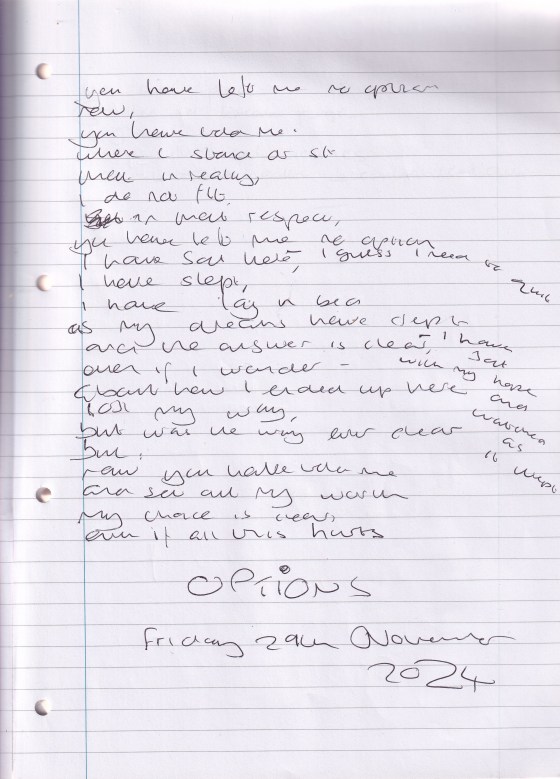 you have left me no option
now,
you have told me.
where I stand or sit
then in reality,
I do not fit,
in that respect,
you have left me no option
I have sat here, I guess I need to
I have slept,
I have lay in bed
as my dreams have slept
and the answer is clear, I have sat with my hope and watched as it wept
even if I wonder -
about how I ended up here
lost my way,
but was the way ever clear
but,
now you have told me
and set out my
my choice is clear,
even if all this hurts
OPTIONS
Friday 29th November
2024